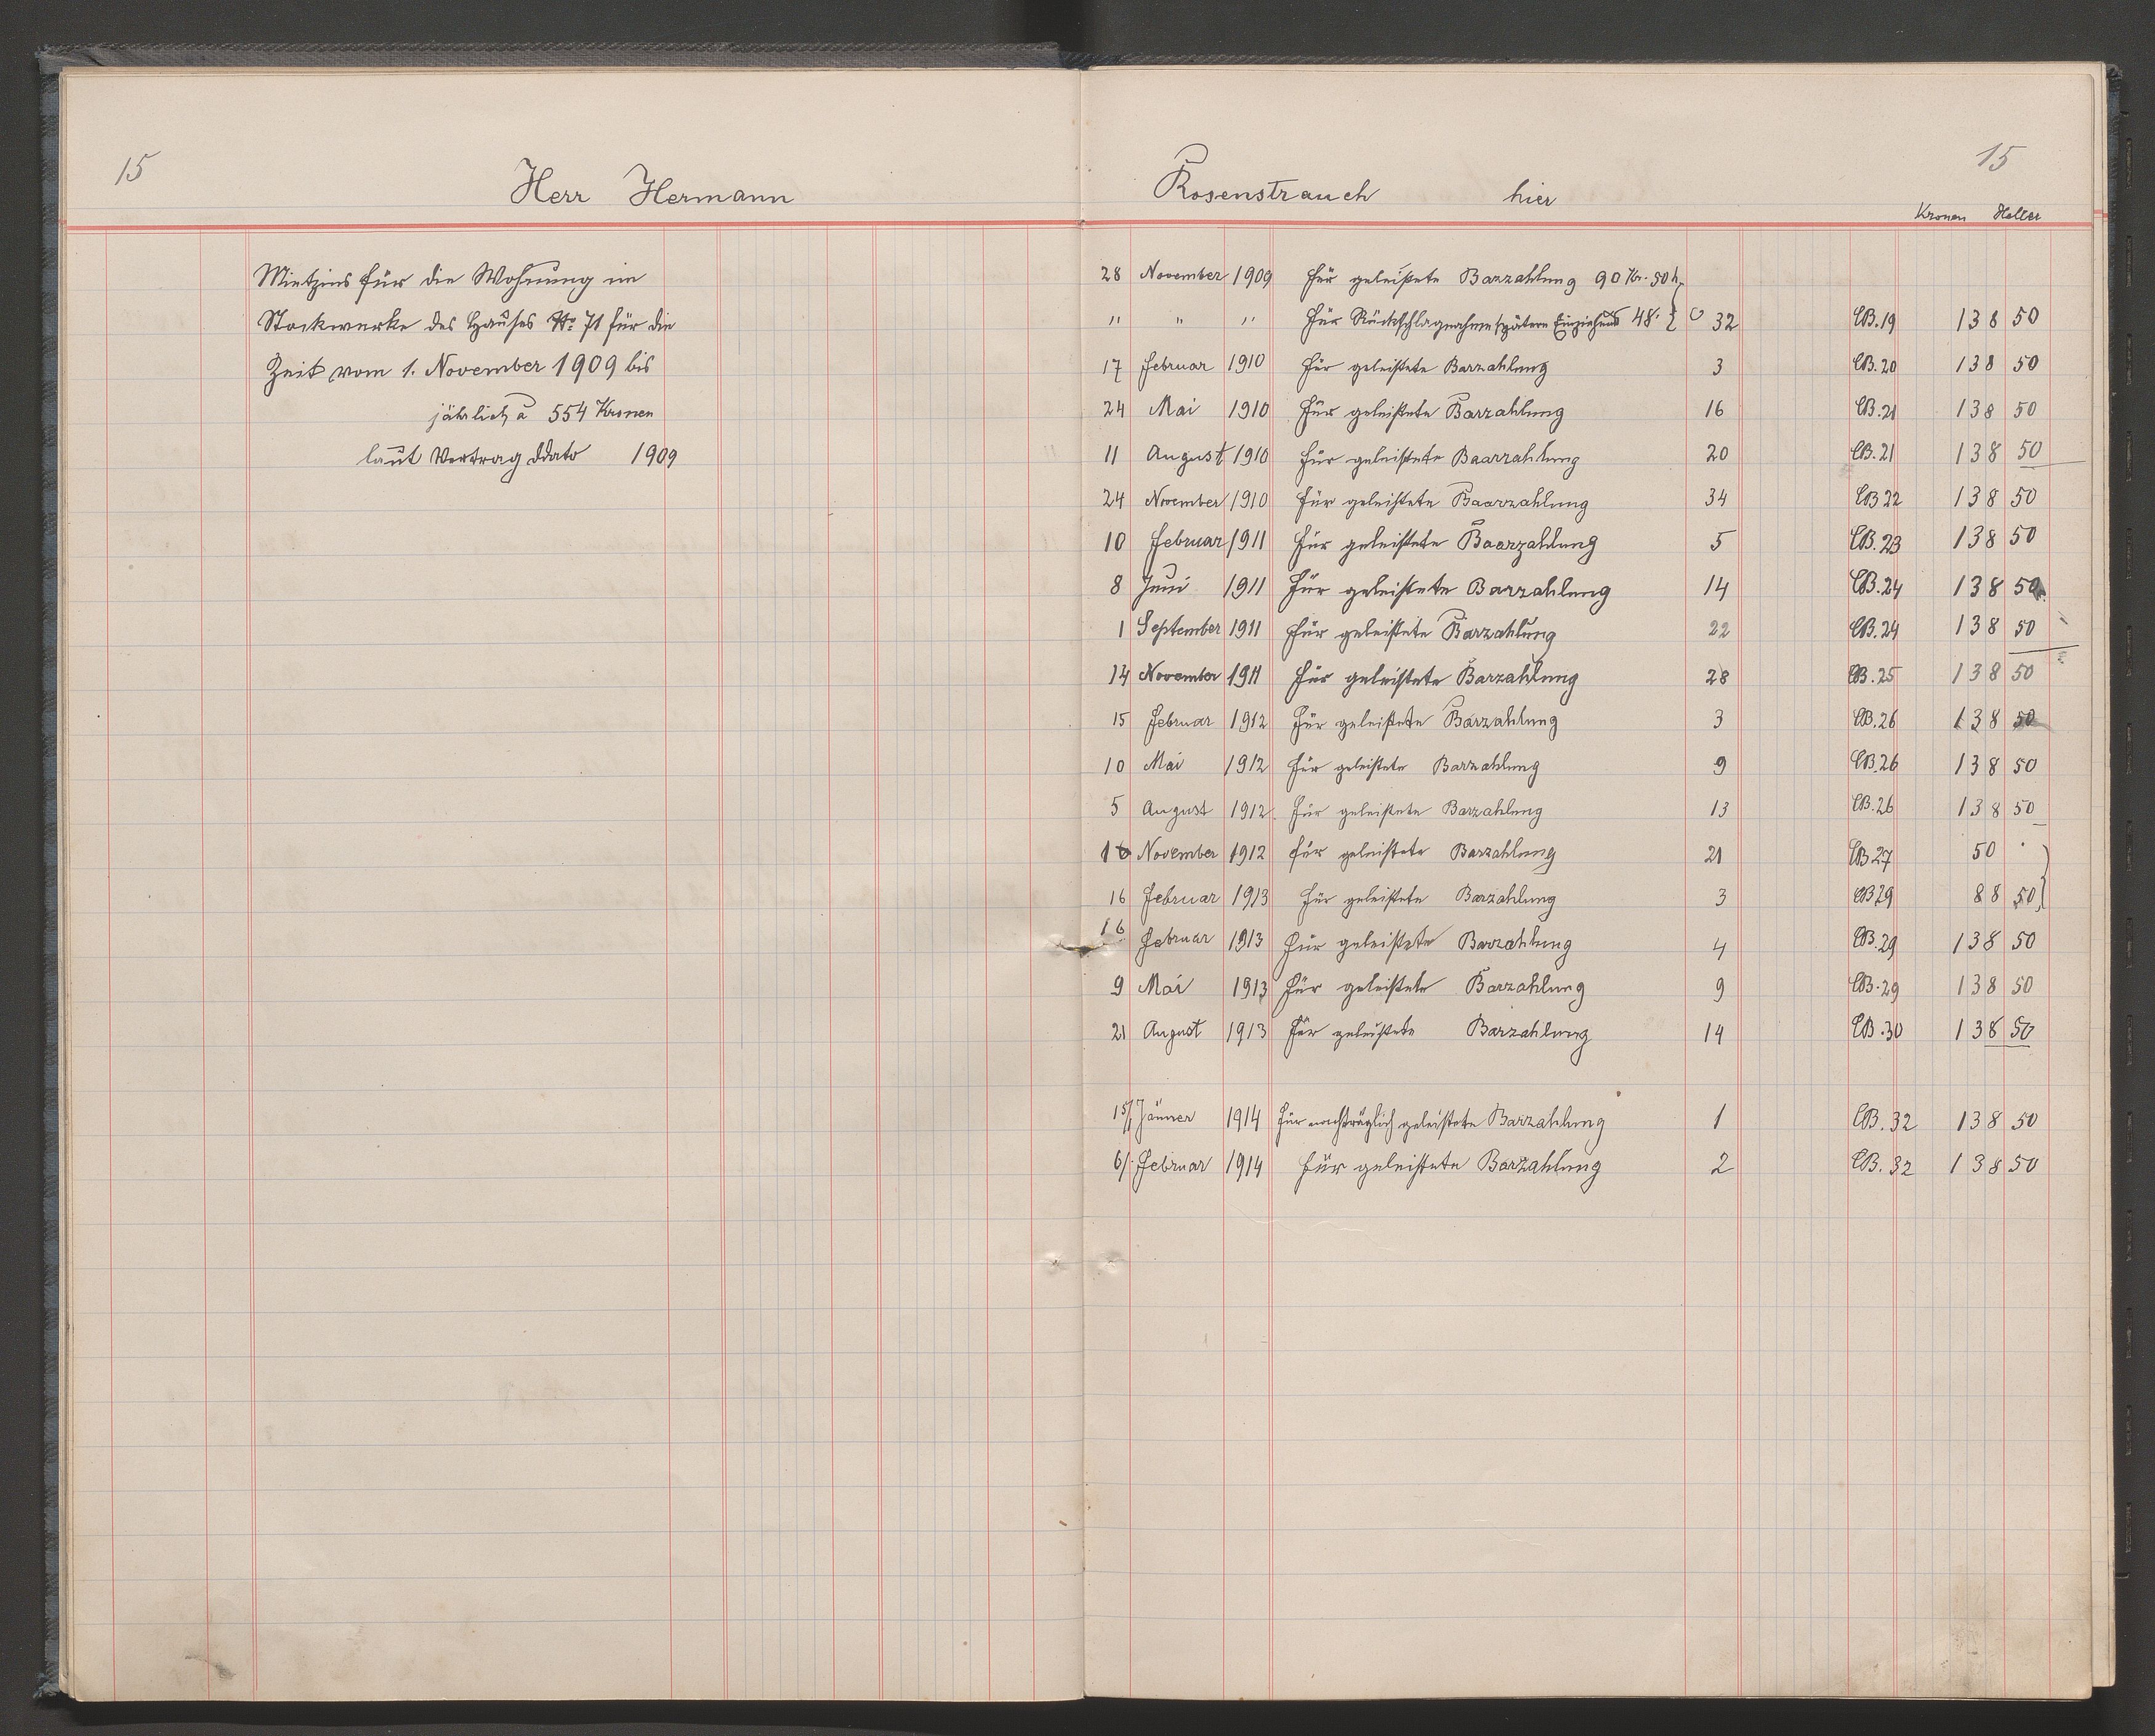 15
Herr Hermann
Mietzins für die Wohnung im
Stockwerke des Hauses No 71 für die
Zeit vom 1. November 1909 bis
jährlich à 554 Kronen
laut Vertrag ddato 1909
15
Rosenstrauch hier
Kronen Heller
28 November 1909 für geleistete Barzahlung 90 Kr. 50 h
" " " für Rückschlagnahme spätere Einziehung 48. 32 CB.19 138 50
17 Februar 1910 für geleistete Barzahlung 3 CB.20 138 50
24 Mai 1910 für geleistete Barzahlung 16 CB.21 138 50
11 August 1910 für geleistete Baarzahlung 20 CB.21 138 50
24 November 1910 für geleistete Baarzahlung 34 CB 22 138 50
10 Februar 1911 für geleistete Baarzahlung 5 CB.23 138 50
8 Juni 1911 für geleistete Barzahlung 14 CB.24 138 50
1 September 1911 für geleistete Barzahlung 22 CB.24 138 50
14 November 1911 für geleistete Barzahlung 28 CB.25 138 50
15 Februar 1912 für geleistete Barzahlung 3 CB.26 138 50
10 Mai 1912 für geleistete Barzahlung 9 CB.26 138 50
5 August 1912 für geleistete Barzahlung 13 CB.26 138 50
16 November 1912 für geleistete Barzahlung 21 CB 27 50 .
16 Februar 1913 für geleistete Barzahlung 3 CB 29 88 50
16 Februar 1913 für geleistete Barzahlung 4 CB.29 138 50
9 Mai 1913 für geleistete Barzahlung 9 CB.29 138 50
21 August 1913 für geleistete Barzahlung 14 CB.30 138 50
15/1 Jänner 1914 für nachträglich geleistete Barzahlung 1 CB.32 138 50
6/. Februar 1914 für geleistete Barzahlung 2 CB.32 138 50